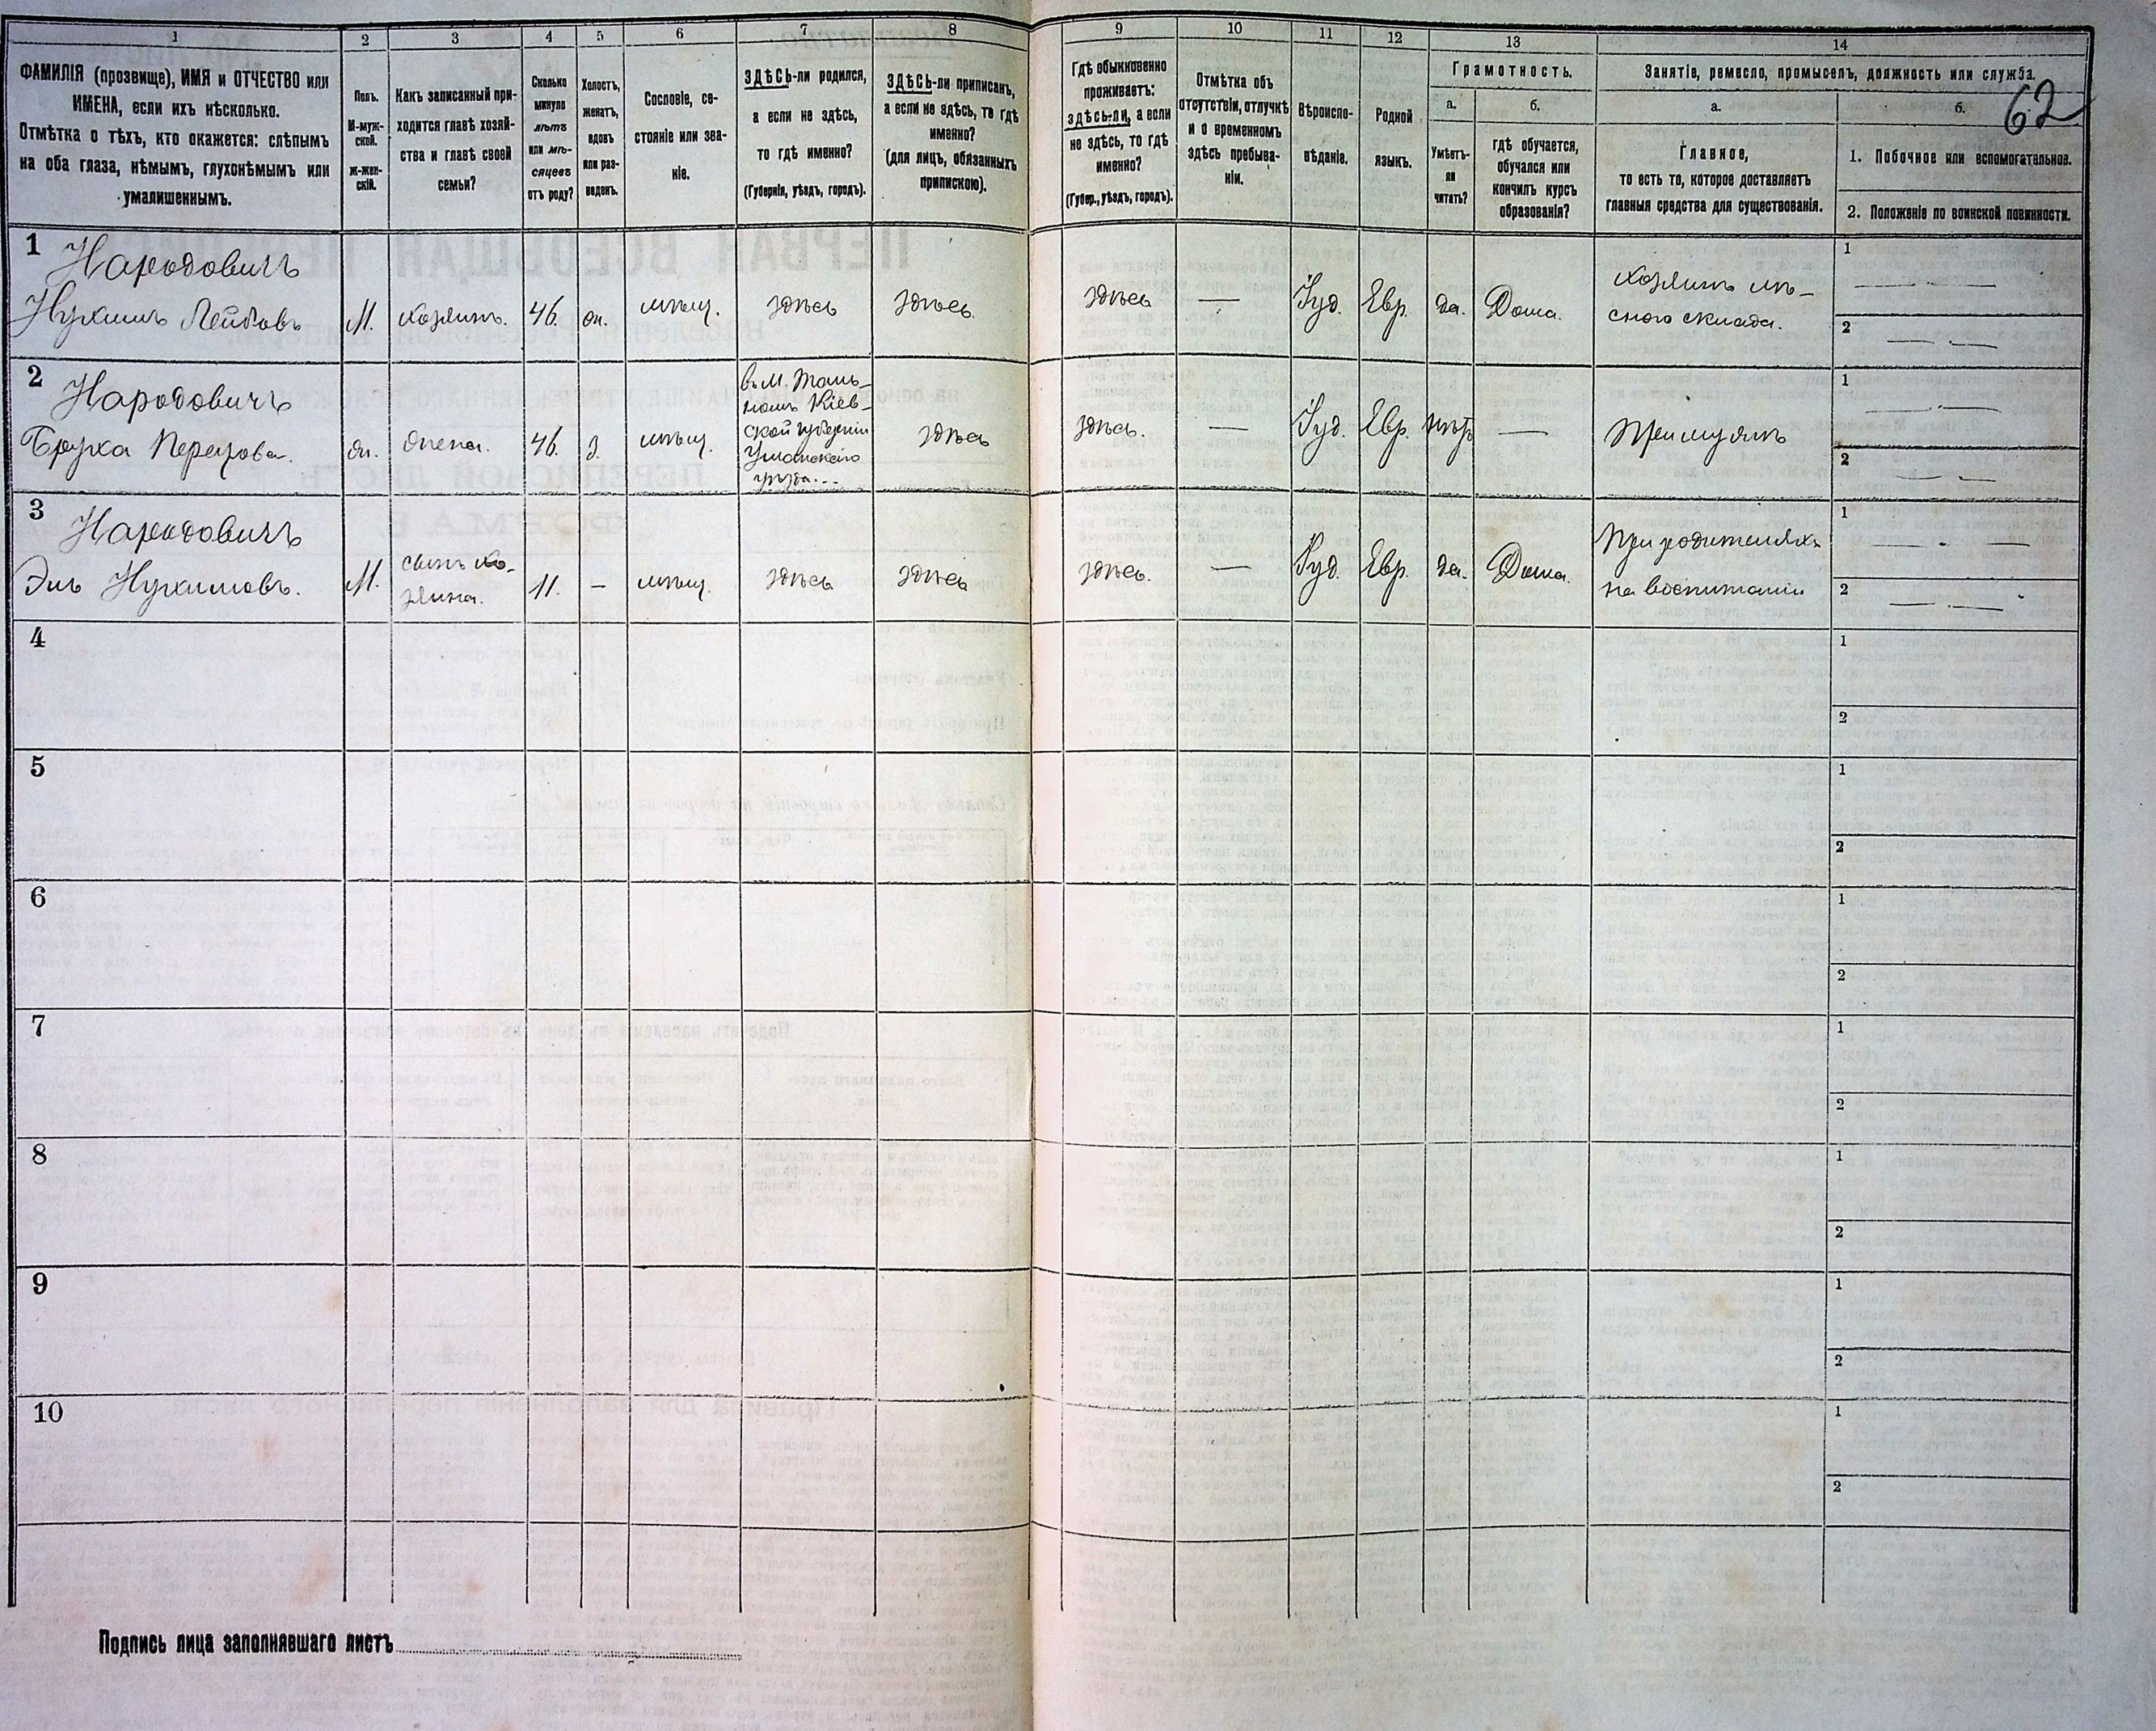 1 2 3 4 5 6 7 8 9 10 11 12 13 14
62
ФАМИЛІЯ (прозвище), ИМЯ и ОТЧЕСТВО или
ИМЕНА, если ихъ нѣсколько.
Отмѣтка о тѣхъ, кто окажется: слѣпымъ
на оба глаза, нѣмымъ, глухонѣмымъ или
умалишеннымъ.
Полъ.
М-муж-
ской.
ж-жен-
скій.
Какъ записанный при-
ходится главѣ хозяй-
ства и главѣ своей
семьи?
Сколько
минуло
лѣтъ
или мѣ-
сяцевъ
отъ роду?
Холостъ,
женатъ,
вдовъ
или раз-
веденъ.
Сословіе, со-
стояніе или зва-
ніе.
ЗДѢСЬ-ли родился,
а если не здѣсь,
то гдѣ именно?
(Губернія, уѣздъ, городъ).
ЗДѢСЬ-ли приписанъ,
а если не здѣсь, то гдѣ
именно?
(для лицъ, обязанныхъ
припискою).
Гдѣ обыкновенно
проживаетъ:
здѣсь-ли, а если
не здѣсь, то гдѣ
именно?
(Губер., уѣздъ, городъ).
Отмѣтка объ
отсутствіи, отлучкѣ
и о временномъ
здѣсь пребыва-
ніи.
Вѣроиспо-
вѣданіе.
Родной
языкъ.
Грамотность.
а.
Умѣетъ-
ли
читать?
б.
гдѣ обучается,
обучался или
кончилъ курсъ
образованія?
Занятіе, ремесло, промыселъ, должность или служба.
а.
Главное,
то есть то, которое доставляетъ
главныя средства для существованія.
б.
1. Побочное или вспомогательное.
2. Положеніе по воинской повинности.
1 Народовичъ
Нухимъ Лейбовъ
М. хозяинъ. 46. жн. мѣщ. здѣсь здѣсь. здѣсь — Іуд. Евр. да. Дома.
хозяинъ лѣ-
сного склада.
1 — —
2 — —
2 Народовичъ
Брука Перецова.
жн. жена. 46. з. мѣщ.
въ м. Таль-
номъ Кіев-
ской губерніи
Уманскаго
уѣзда.
здѣсь здѣсь. — Іуд. Евр. нѣтъ —
При мужѣ
1 — —
2 — —
3 Народовичъ
Эль Нухимовъ.
М.
сынъ хо-
зяина.
11. — мѣщ. здѣсь здѣсь здѣсь. — Іуд. Евр. да. Дома.
При родителяхъ
на воспитаніи
1 — —
2 — —
4
1
2
5
1
2
6
1
2
7
1
2
8
1
2
9
1
2
10
1
2
Подпись лица заполнявшаго листъ